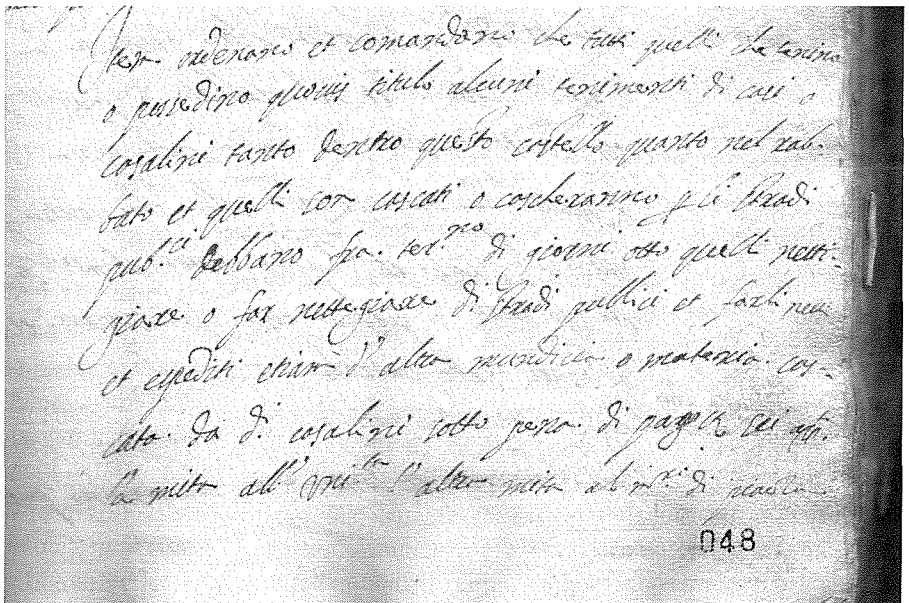 Item ordenano et comandano che tutti quelli che tenino
o possedino quovis titulo alcuni tenimenti di casi o
casalini tanto dentro questo castello quanto nel rab-
bato et quelli son cascati o cascheranno p li stradi
pub.ci debbano fra. ter.no di giorni otto quelli netti-
giare o far nettegiare di stradi pullici et farli netti
et expediti etiam d' altra mundicia o materia. cas-
cata. da d. casalini sotto pena. di pagar
la mita all' Uni.ta l' altra mita al m.ro di piazza.
048